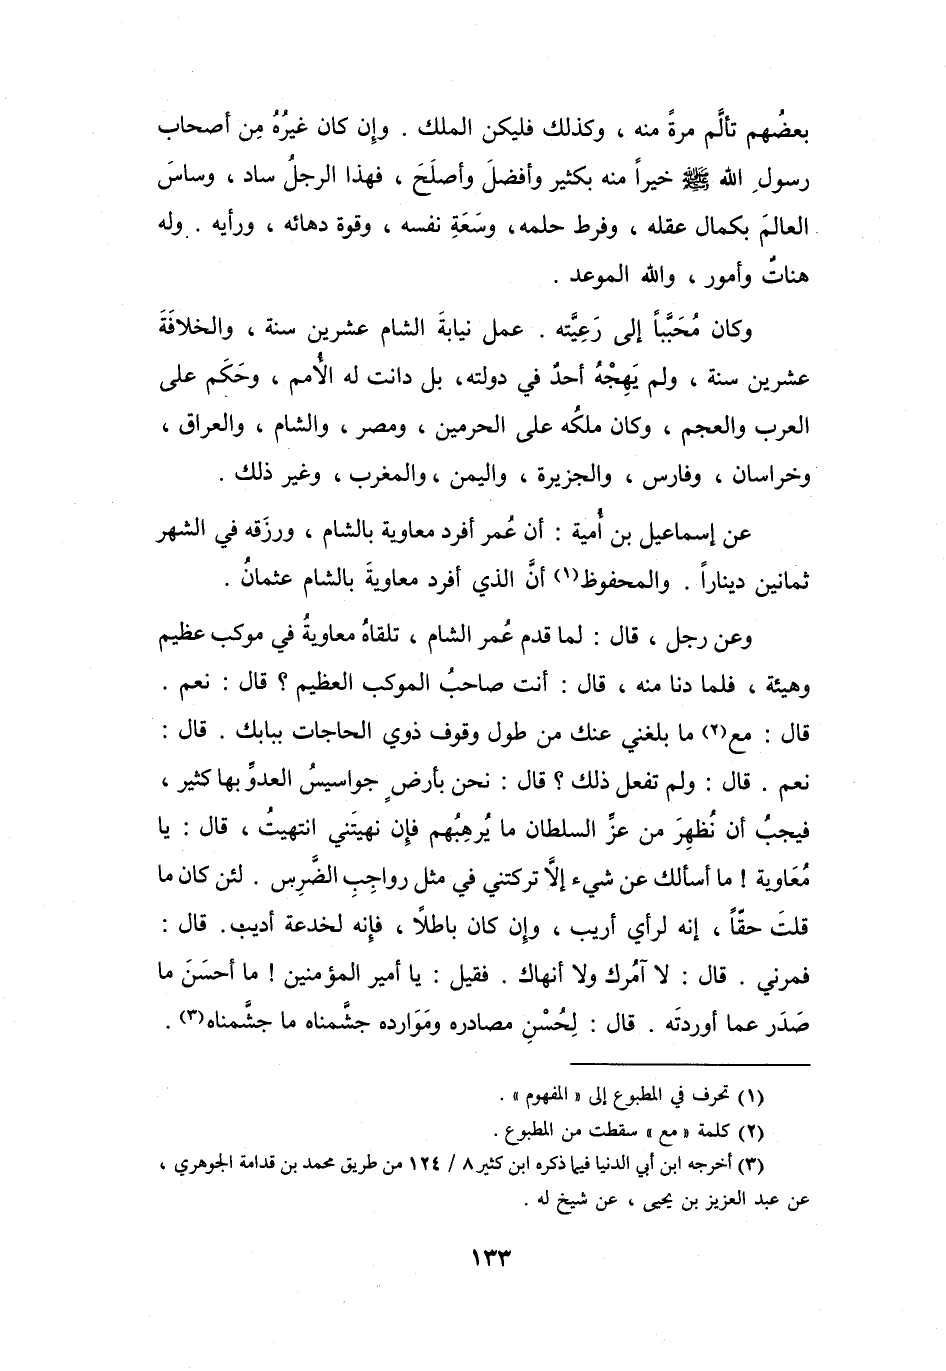 بعضُهم تألَّم مرةً منه ، وكذلك فليكن الملك . وإن كان غيرُهُ مِن أصحاب
رسولِ الله ﷺ خيراً منه بكثير وأفضلَ وأصلَحَ ، فهذا الرجلُ ساد ، وساسَ
العالمَ بكمال عقله ، وفرط حلمه، وسَعَةِ نفسه ، وقوة دهائه ، ورأيه . وله
هناتٌ وأمور ، والله الموعد .
وكان مُحَبَّباً إلى رَعِيَّته . عمل نيابةَ الشام عشرين سنة ، والخلافَةَ
عشرين سنة ، ولم يَهِجْهُ أحدٌ في دولته، بل دانت له الأُمم ، وحَكَم على
العرب والعجم ، وكان ملكُه على الحرمين ، ومصر ، والشام ، والعراق ،
وخراسان ، وفارس ، والجزيرة ، واليمن ، والمغرب ، وغير ذلك .
عن إسماعيل بن أُمية : أن عُمر أفرد معاوية بالشام ، ورزَقه في الشهر
ثمانين ديناراً . والمحفوظ(١) أنَّ الذي أفرد معاويةَ بالشام عثمانُ .
وعن رجل ، قال : لما قدم عُمر الشام ، تلقاهُ معاويةُ في موكب عظيم
وهيئة ، فلما دنا منه ، قال : أنت صاحبُ الموكب العظيم ؟ قال : نعم .
قال : مع(٢) ما بلغني عنك من طول وقوف ذوي الحاجات ببابك . قال :
نعم . قال : ولم تفعل ذلك ؟ قال : نحن بأرضٍ جواسيسُ العدوِّ بها كثير ،
فيجبُ أن نُظهِرَ من عزِّ السلطان ما يُرهِبُهم فإن نهيتَني انتهيتُ ، قال : يا
مُعَاوية ! ما أسألك عن شيء إلَّا تركتني في مثل رواجِبِ الضَّرِس . لئن كان ما
قلتَ حقّاً ، إنه لرأي أريب ، وإن كان باطلًا ، فإنه لخدعة أديب. قال :
فمرني . قال : لا آمُرك ولا أنهاك . فقيل : يا أمير المؤمنين ! ما أحسَنَ ما
صَدَر عما أوردتَه . قال : لِحُسْنِ مصادره ومَوَارده جشَّمناه ما جشَّمناه(٣) .
(١) تحرف في المطبوع إلى « المفهوم » .
(٢) كلمة « مع » سقطت من المطبوع .
(٣) أخرجه ابن أبي الدنيا فيما ذكره ابن كثير ٨ / ١٢٤ من طريق محمد بن قدامة الجوهري ،
عن عبد العزيز بن يحيى ، عن شيخ له .
١٣٣